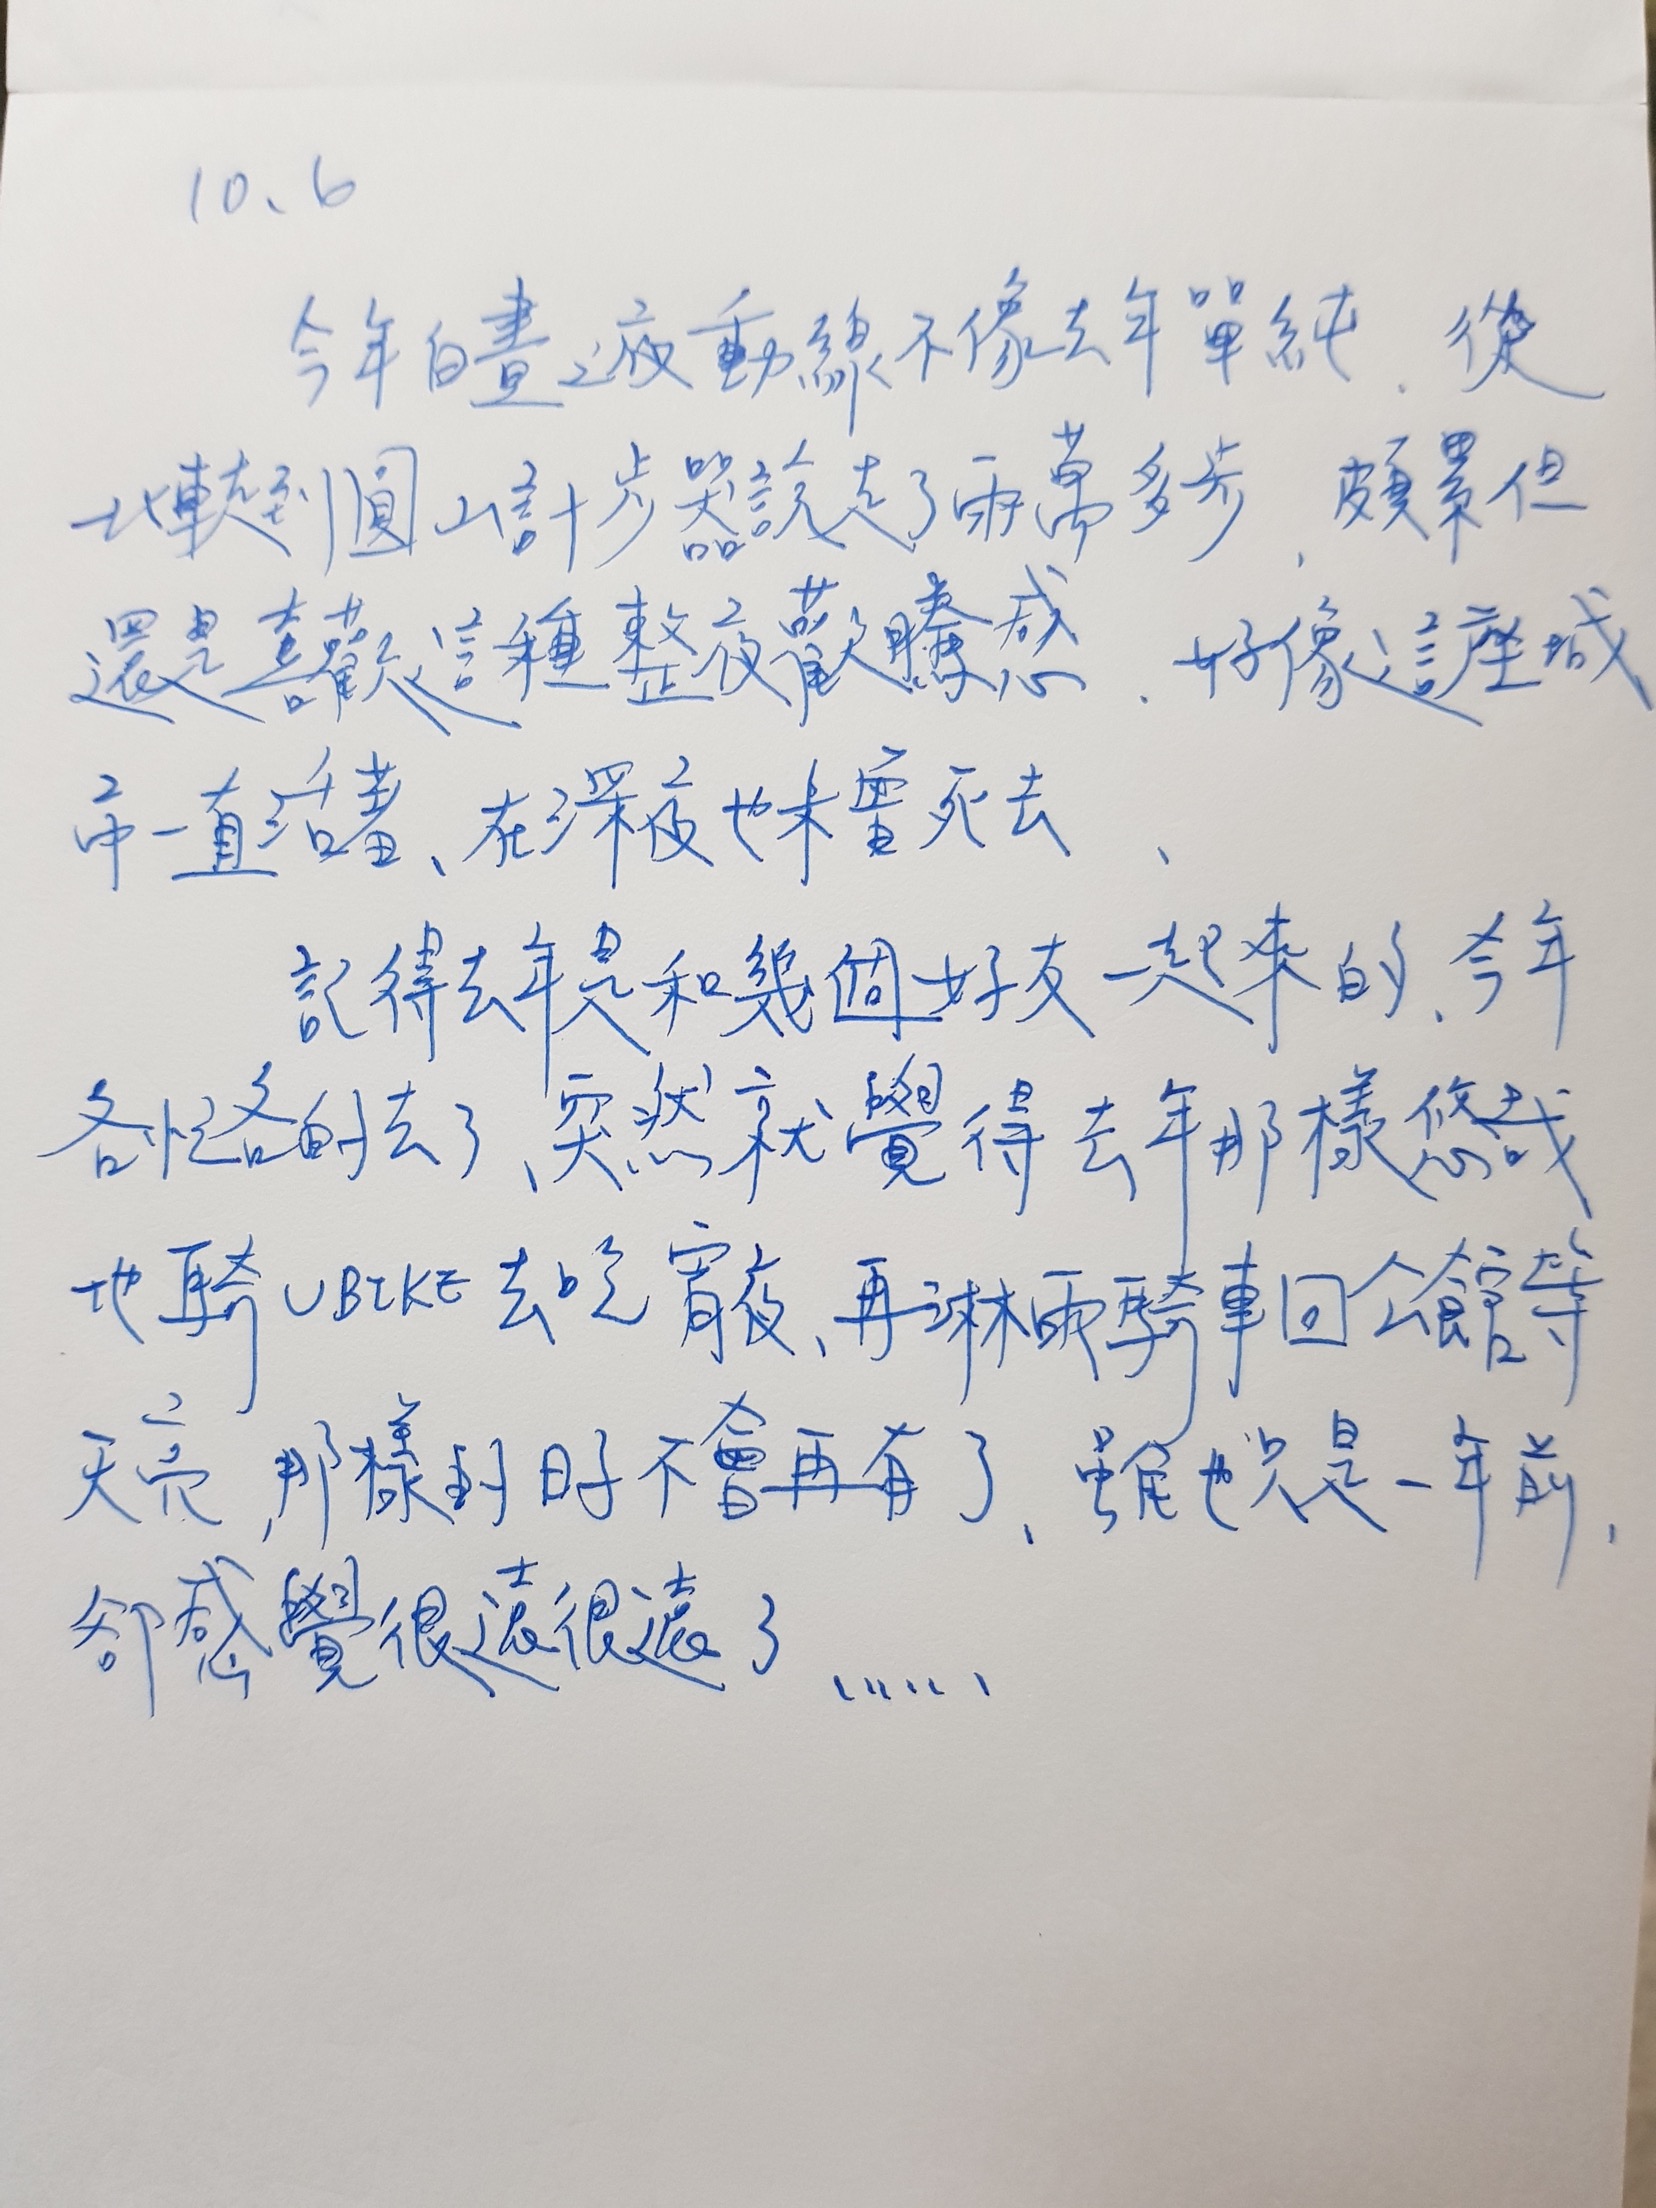 10、6
今年白晝之夜動線不像去年單純、從
北車走到圓山計步器說走了兩萬多步、頗累但
還是喜歡這種整夜歡騰感、好像這座城
市一直活著、在深夜也未曾死去、
記得去年是和幾個好友一起來的、今年
各忙各的去了、突然就覺得去年那樣悠哉
地騎UBIKE去吃宵夜、再淋雨騎車回公館等
天亮、那樣的日子不會再有了、雖也只是一年前、
卻感覺很遠很遠了......